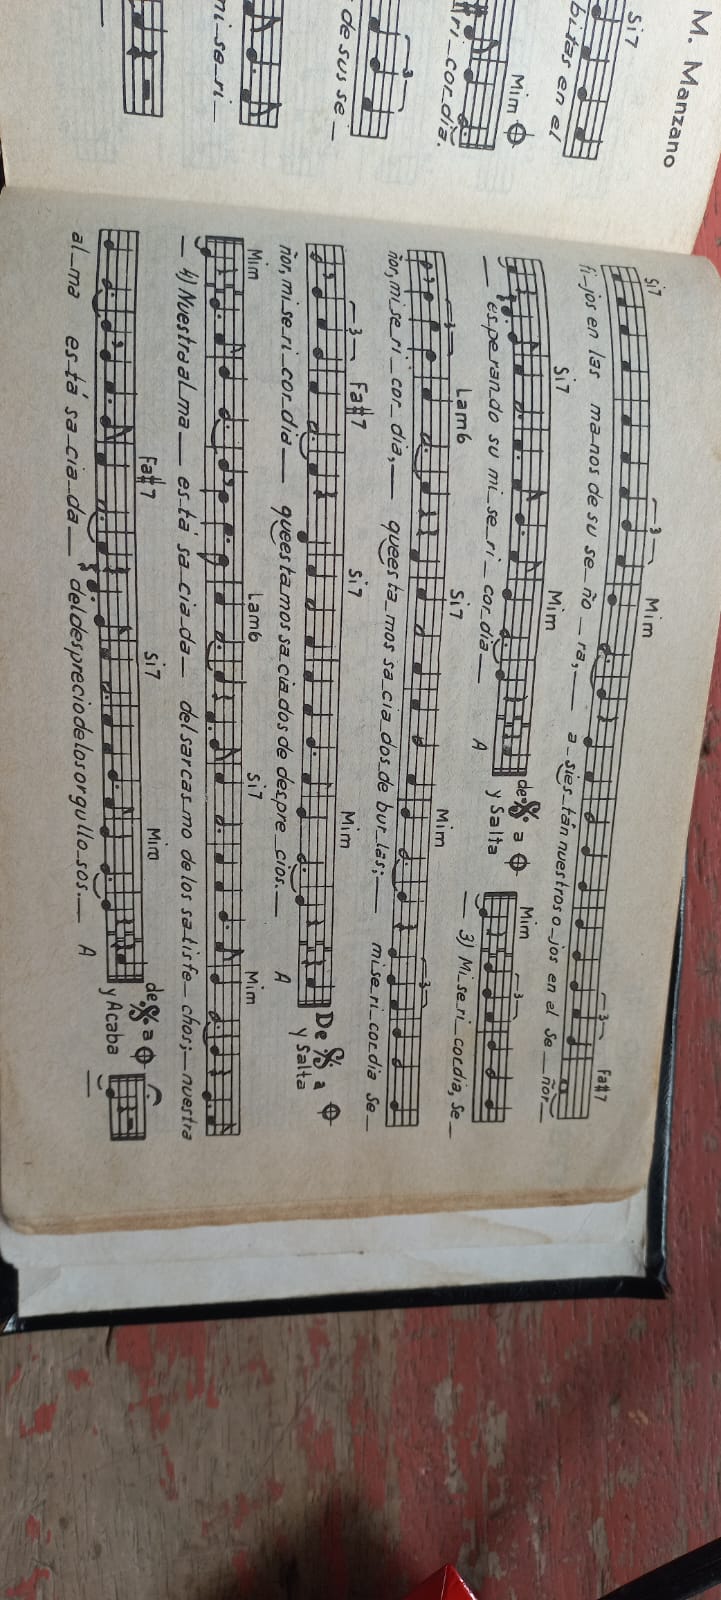 M. Manzano
Si7
bitas en el
Mim
ri_cor_día.
3
de sus se_
ni_se_ri_
Si7 3 Mim 3 Fa#7
fi_jos en las manos de su se_ño_ra,— a_sies_tán nuestros o_jos en el Se_ñor_
Si7 Mim de 𝄋 a 𝄌 Mim 3
— esperando su mi_se_ri_cor_dia— A y Salta — 3) Mi_se_ri_cordia, Se_
3 Lamb Si7 Mim 3
ñor, mi_se_ri_cor_dia,— que esta_mos sa_cia_dos de bur_las;— mi_se_ri_cordia Se_
3 Fa#7 Si7 Mim De 𝄋 a 𝄌
ñor, mi_se_ri_cor_dia— que estamos sa_cia_dos de despre_cios.— A y Salta
Mim Lamb Si7 Mim
— 4) Nuestra al_ma— es_tá sa_cia_da— del sarcasmo de los satisfe_chos;— nuestra
Fa#7 Si7 Mim de 𝄋 a 𝄌
al_ma es_tá sa_cia_da— del desprecio de los orgullo_sos.— A y Acaba —